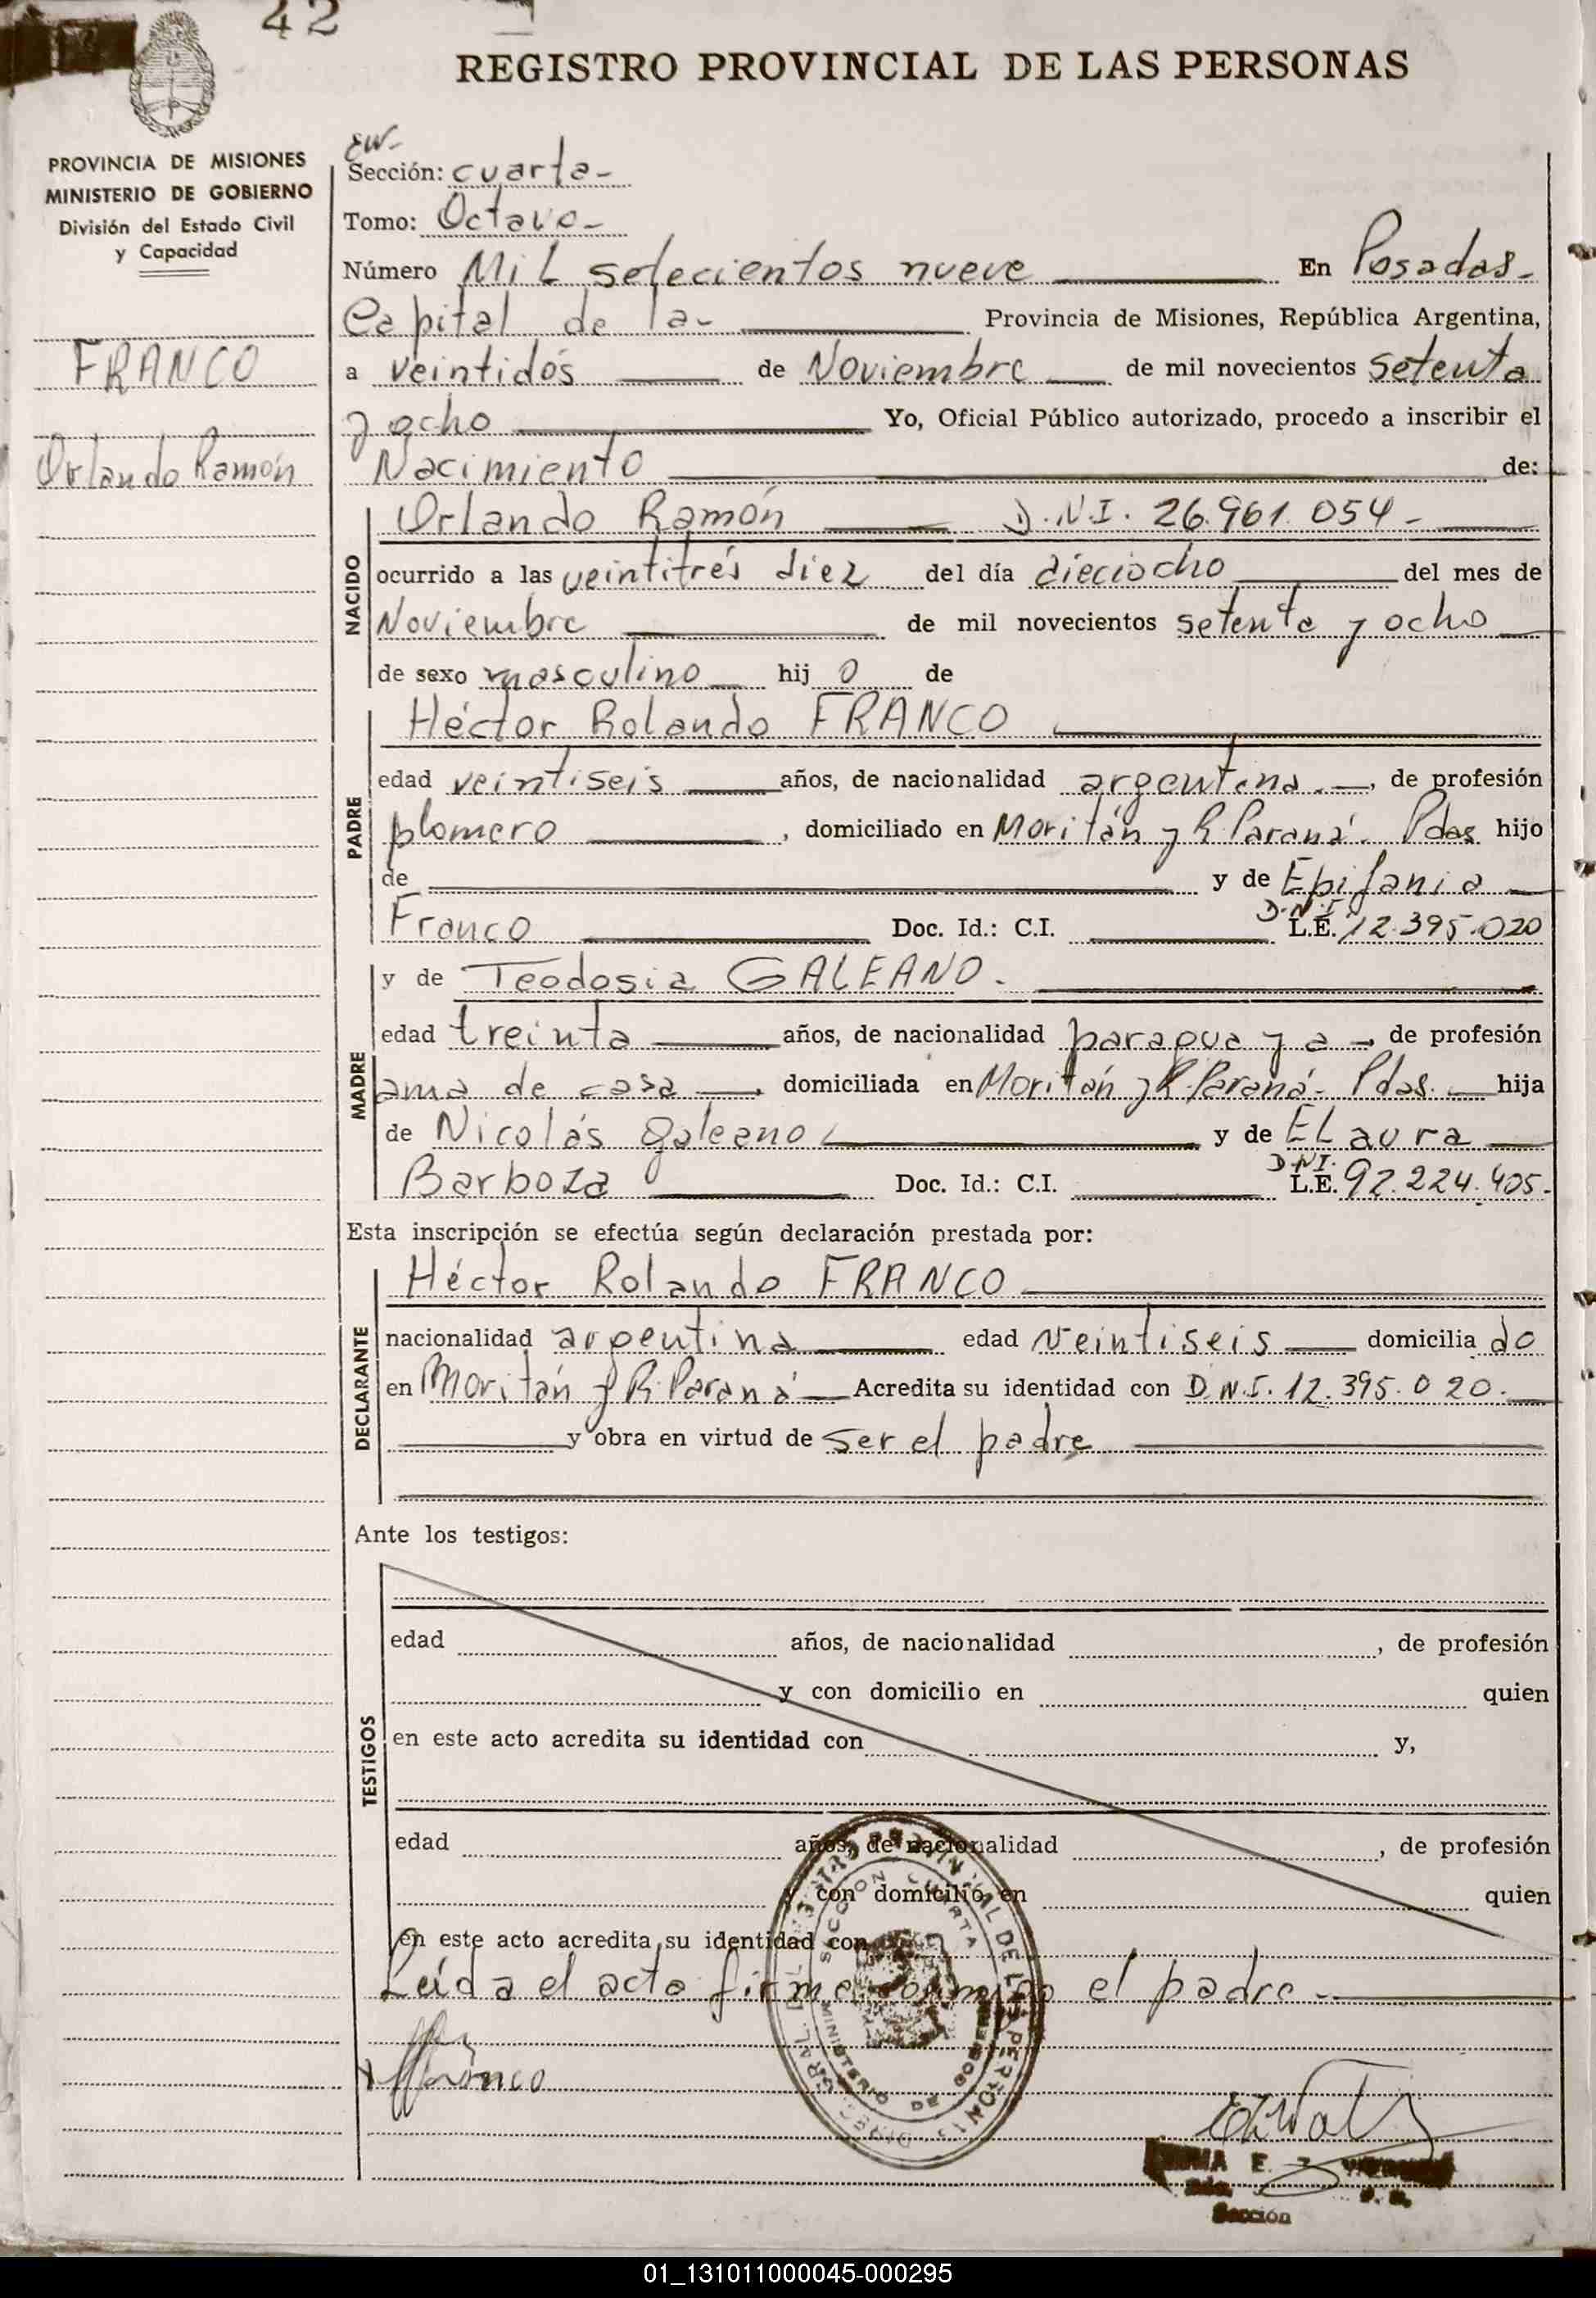 42
REGISTRO PROVINCIAL DE LAS PERSONAS
PROVINCIA DE MISIONES
MINISTERIO DE GOBIERNO
División del Estado Civil
y Capacidad
FRANCO
Orlando Ramón
Sección: cuarta-
Tomo: Octavo-
Número Mil setecientos nueve En Posadas-
Capital de la- Provincia de Misiones, República Argentina,
a veintidós de Noviembre de mil novecientos setenta
y ocho Yo, Oficial Público autorizado, procedo a inscribir el
Nacimiento de:
NACIDO
Orlando Ramón D.N.I. 26.961.054-
ocurrido a las veintitrés diez del día dieciocho del mes de
Noviembre de mil novecientos setenta y ocho
de sexo masculino hij o de
PADRE
Héctor Rolando FRANCO
edad veintiseis años, de nacionalidad argentina.-, de profesión
plomero, domiciliado en Moritán y R. Paraná- Pdas hijo
de y de Epifania
D.N.I.
Franco Doc. Id.: C.I. L.E. 12.395.020
MADRE
y de Teodosia GALEANO.
edad treinta años, de nacionalidad paraguaya-, de profesión
ama de casa, domiciliada en Moritán y R. Paraná- Pdas. hija
de Nicolás Galeano y de ELaura
D.N.I.
Barboza Doc. Id.: C.I. L.E. 92.224.405.
Esta inscripción se efectúa según declaración prestada por:
DECLARANTE
Héctor Rolando FRANCO
nacionalidad argentina edad veintiseis domicilia do
en Moritán y R. Paraná Acredita su identidad con D.N.I. 12.395.020.
y obra en virtud de ser el padre
Ante los testigos:
TESTIGOS
edad años, de nacionalidad, de profesión
y con domicilio en quien
en este acto acredita su identidad con y,
edad años, de nacionalidad, de profesión
y con domicilio en quien
en este acto acredita su identidad con
Leída el acta firma conmigo el padre.-
Franco
SECCION CUARTA
MINISTERIO DE GOBIERNO
E.
Sección
01_131011000045-000295